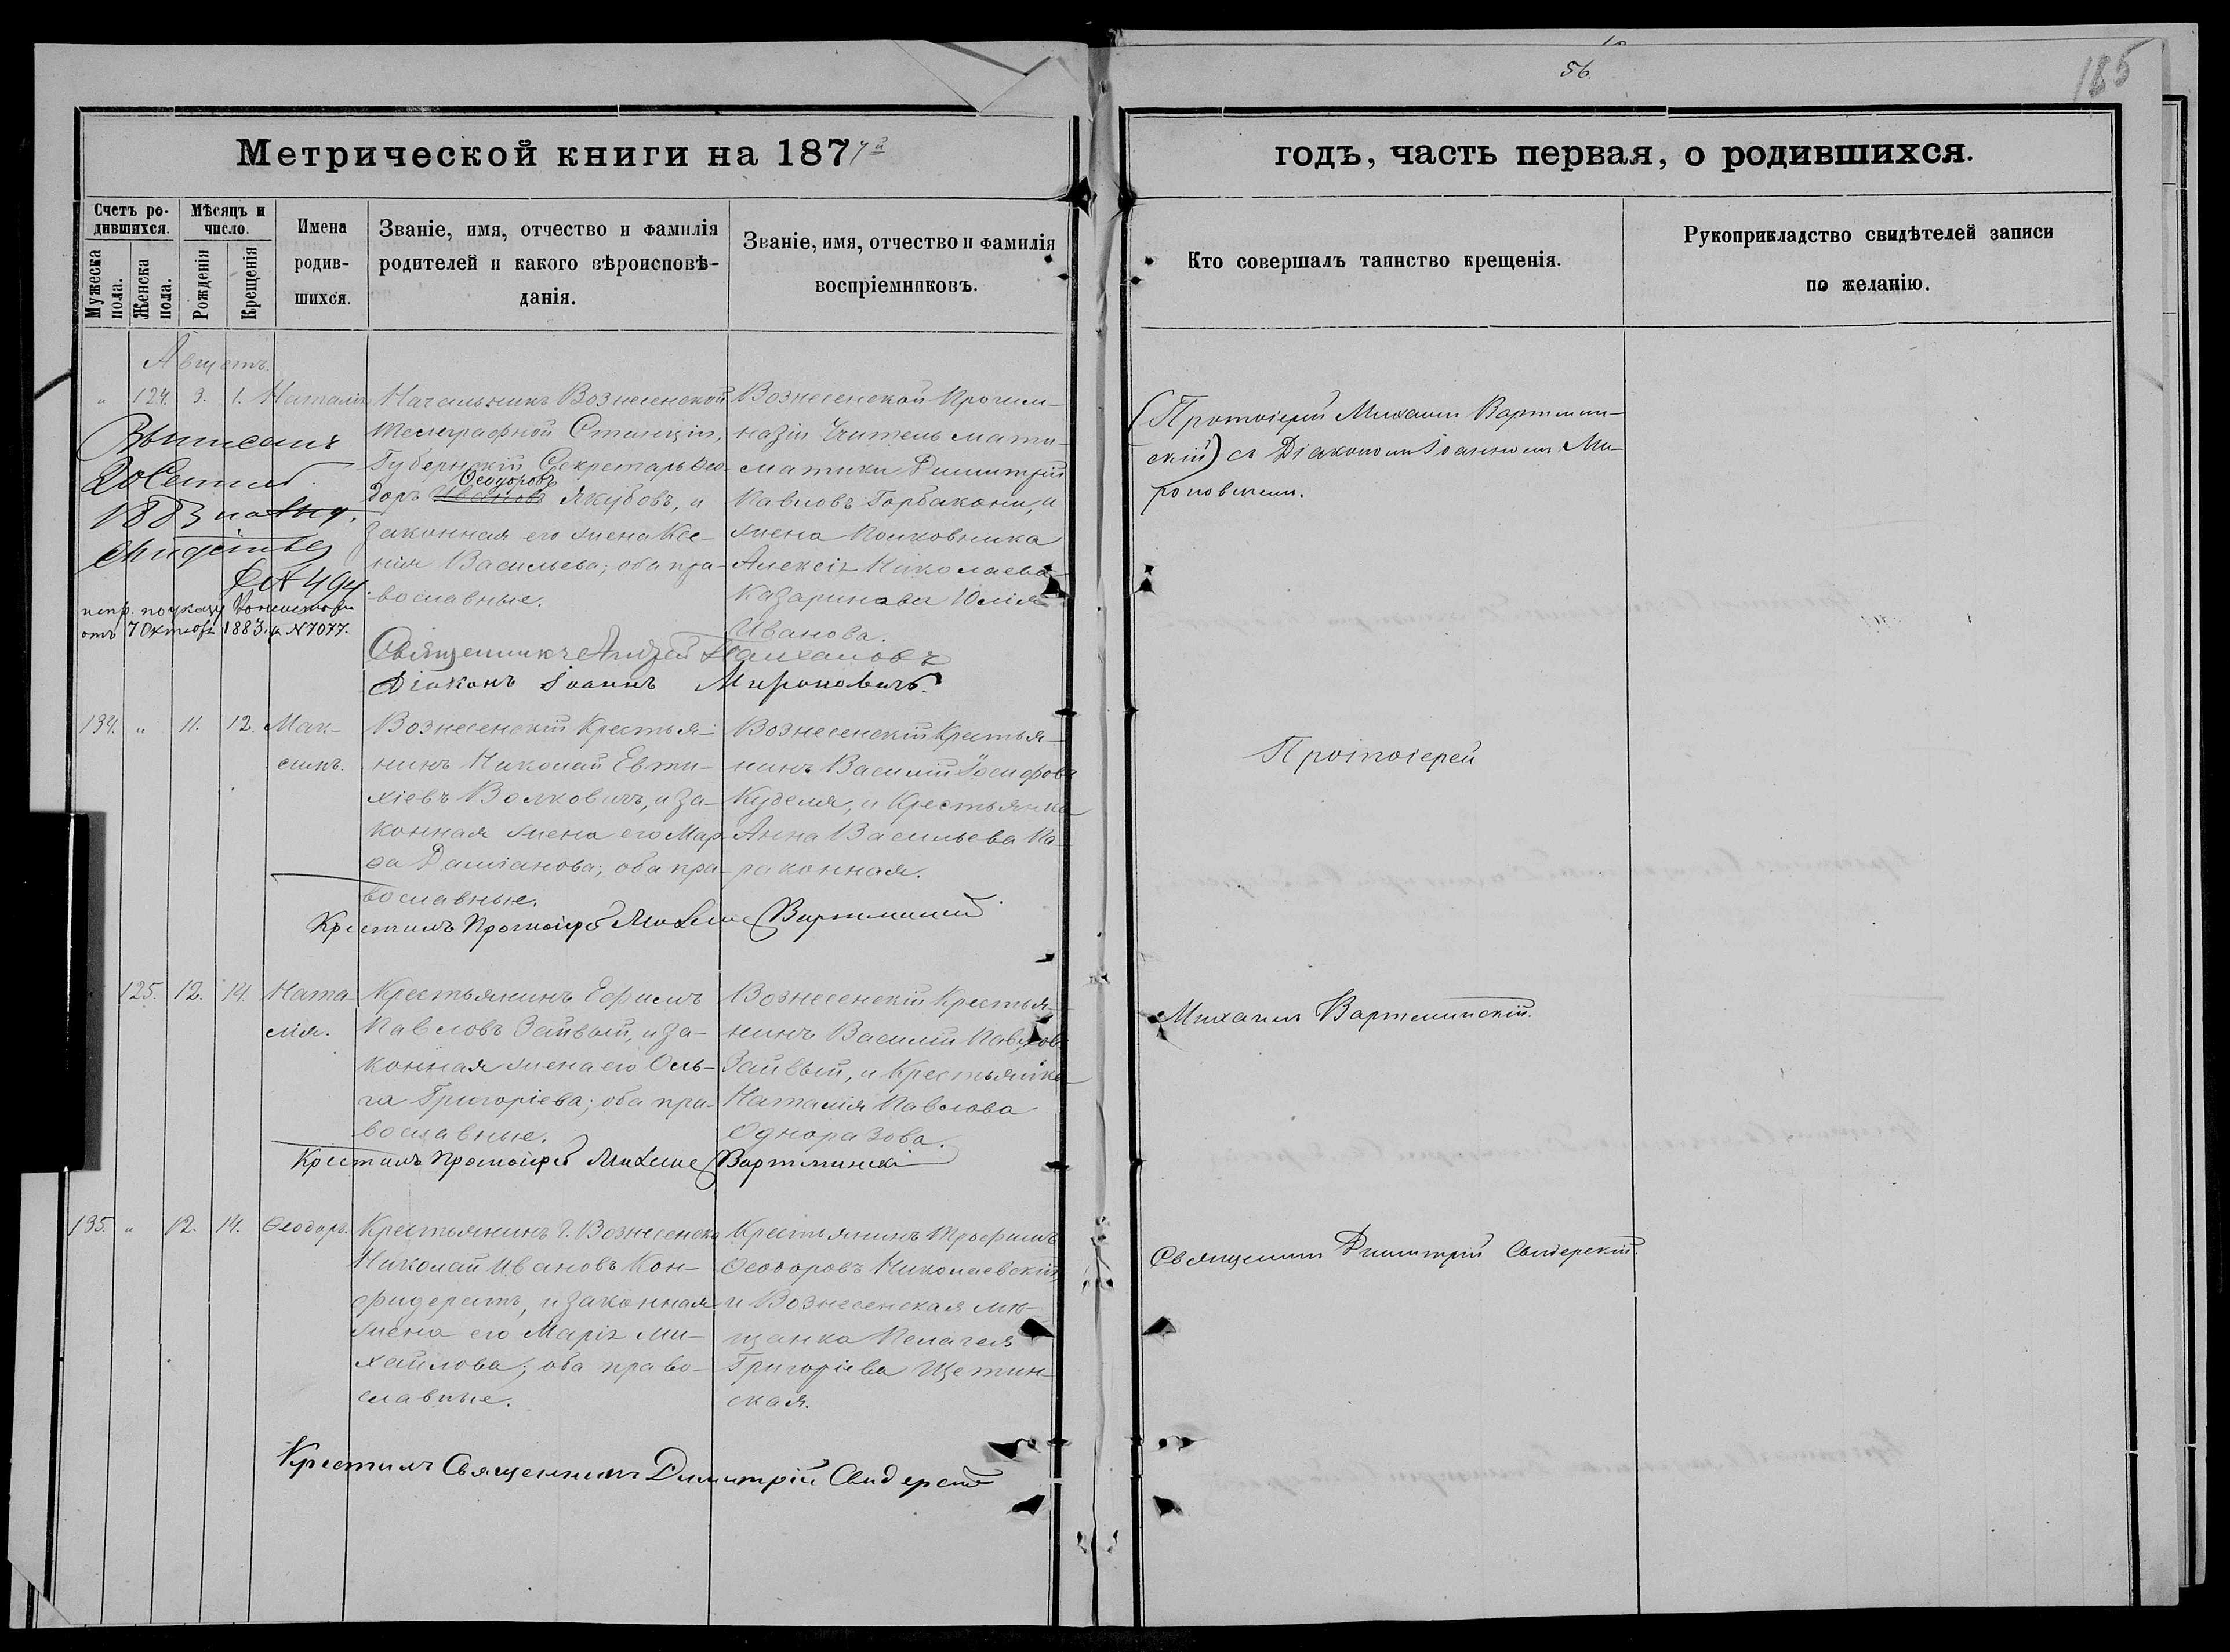 56.
185
Метрической книги на 1877й
годъ, часть первая, о родившихся.
Счетъ ро-
дившихся.
Мужеска
пола.
Женска
пола.
Мѣсяцъ и
число.
Рожденія
Крещенія
Имена
родив-
шихся.
Званіе, имя, отчество и фамилія
родителей и какого вѣроисповѣ-
данія.
Званіе, имя, отчество и фамилія
воспріемниковъ.
Кто совершалъ таинство крещенія.
Рукоприкладство свидѣтелей записи
по желанію.
Августъ.
" 124. 3. 1. Наталія
Начальникъ Вознесенской
Телеграфной Станціи,
Губернскій Секретарь Ѳео-
Ѳеодоровъ
доръ Якубовъ, и
законная его жена Ксе-
нія Васильева; оба пра-
вославные.
Вознесенской Прогим-
назіи Учитель мате-
матики Димитрій
Павловъ Горбаконь, и
жена Полковника
Алексія Николаева
Казаринова Юлія
Иванова.
1883
№ 494
испр. по указу Консисторіи
отъ 7 Октября 1883 г. № 7077.
Священникъ Андрей
Діаконъ Іоаннъ Мироновичъ.
(Протоіерей Михаилъ Вартмин-
скій) съ Діакономъ Іоанномъ Ми-
роновичемъ.
134. " 11. 12. Мак-
симъ.
Вознесенскій Крестья-
нинъ Николай Евти-
хіевъ Волковичъ, и за-
конная жена его Мар-
ѳа Даміанова; оба пра-
вославные.
Вознесенскій Крестья-
нинъ Василій Іосифовъ
Куделя, и Крестьянка
Анна Васильева Па-
раконная.
Крестилъ Протоіерей Михаилъ Вартминскій
Протоіерей
125. 12. 14. Ната-
лія.
Крестьянинъ Ефимъ
Павловъ Зайвый, и за-
конная жена его Оль-
га Григоріева; оба пра-
вославные.
Вознесенскій Крестья-
нинъ Василій Павловъ
Зайвый, и Крестьянка
Наталія Павлова
Одноразова.
Крестилъ Протоіерей Михаилъ Вартминскій
Михаилъ Вартминскій.
135. " 12. 14. Ѳеодоръ.
Крестьянинъ г. Вознесенска
Николай Ивановъ Кон-
фидератъ, и законная
жена его Марія Ми-
хайлова; оба право-
славные.
Крестьянинъ Трофимъ
Ѳеодоровъ Николаевскій,
и Вознесенская мѣ-
щанка Пелагея
Григоріева Щетин-
ская.
Крестилъ Священникъ Димитрій Свидерскій
Священникъ Димитрій Свидерскій.